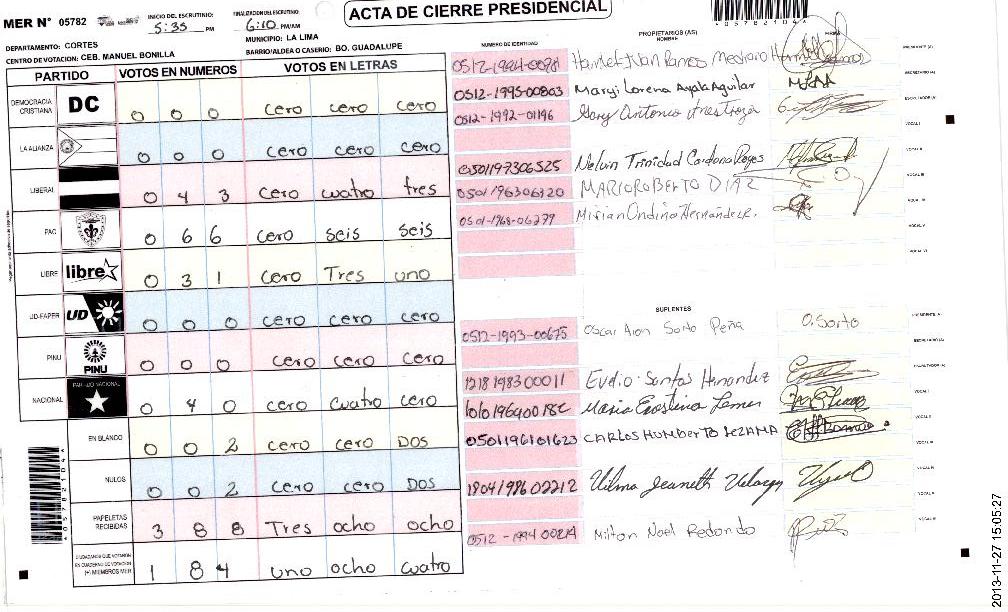 ACTA DE CIERRE PRESIDENCIAL
MER N° 05782
INICIO DEL ESCRUTINIO: 5:35 PM
FINALIZACION DEL ESCRUTINIO: 6:10 PM/AM
DEPARTAMENTO: CORTES
MUNICIPIO: LA LIMA
CENTRO DE VOTACION: CEB. MANUEL BONILLA
BARRIO/ALDEA O CASERIO: BO. GUADALUPE
PARTIDO VOTOS EN NUMEROS VOTOS EN LETRAS
DEMOCRACIA CRISTIANA DC 0 0 0 cero cero cero
LA ALIANZA 0 0 0 cero cero cero
LIBERAL 0 4 3 cero cuatro tres
PAC 0 6 6 cero seis seis
LIBRE libre 0 3 1 cero Tres uno
UD-FAPER UD 0 0 0 cero cero cero
PINU PINU 0 0 0 cero cero cero
NACIONAL PARTIDO NACIONAL 0 4 0 cero cuatro cero
EN BLANCO 0 0 2 cero cero DOS
NULOS 0 0 2 cero cero DOS
PAPELETAS RECIBIDAS 3 8 8 Tres ocho ocho
CIUDADANOS QUE VOTARON EN CUADERNO DE VOTACION (+) MIEMBROS MER 1 8 4 uno ocho cuatro
*05782104*
NUMERO DE IDENTIDAD
PROPIETARIOS (AS)
NOMBRE
FIRMA
PRESIDENTE (A)
SECRETARIO (A)
0512-1995-00803 Maryi Lorena Ayala Aguilar
ESCRUTADOR (A)
0512-1992-01196 Gary Antonio
VOCAL I
0501197306525 Nelvin Trinidad Cardona Reyes
0501196306320 MARIO ROBERTO DIAZ
0501-1968-06279 Mirian Ondina Hernández R.
SUPLENTES
0512-1993-00675 Oscar Sorto Peña O. Sorto
1218198300011 Evdio Santos
Maria
0501196101623 CARLOS HUMBERTO LEZAMA
1804198602212 Vilma Jeaneth
0512-1994 Milton Noel Redondo
2013-11-27 15:05:27